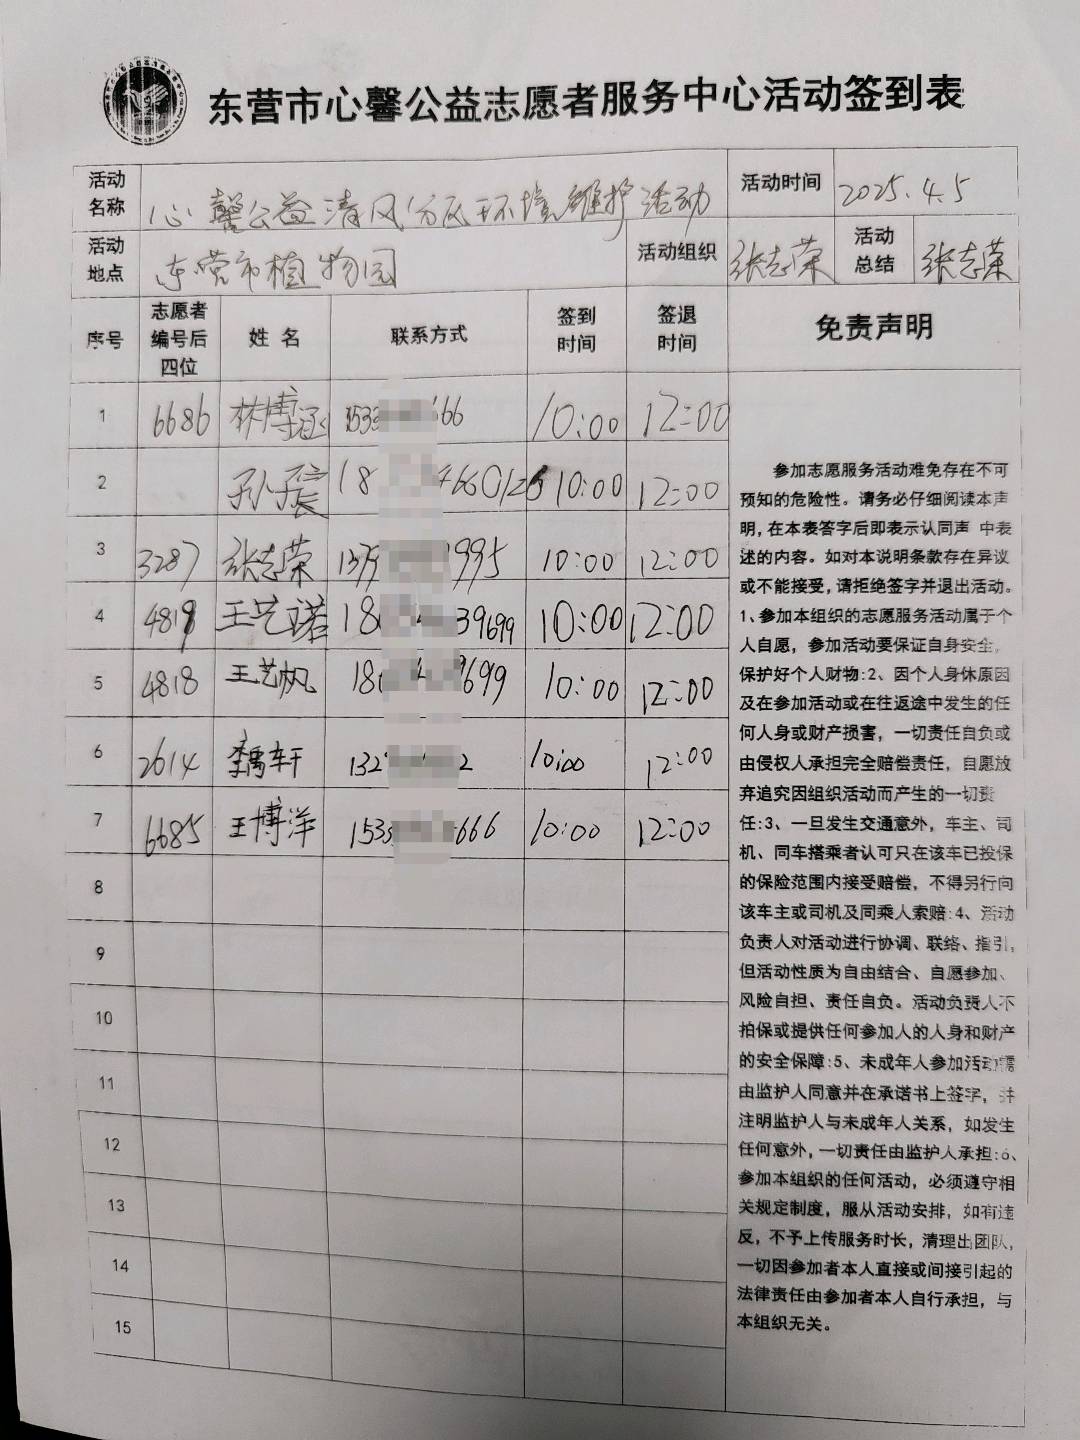 东营市心馨公益志愿者服务中心活动签到表
活动名称 心馨公益清风分队环境维护活动 活动时间 2025.4.5
活动地点 东营市植物园 活动组织 张志荣 活动总结 张志荣
序号 志愿者编号后四位 姓名 联系方式 签到时间 签退时间 免责声明
1 6686 林博涵 10:00 12:00
2 孙震 10:00 12:00
3 3287 张志荣 10:00 12:00
4 4819 王艺诺 10:00 12:00
5 4818 王艺帆 10:00 12:00
6 2614 李禹轩 10:00 12:00
7 6685 王博洋 10:00 12:00
8
9
10
11
12
13
14
15
参加志愿服务活动难免存在不可
预知的危险性。请务必仔细阅读本声
明,在本表签字后即表示认同声 中表
述的内容。如对本说明条款存在异议
或不能接受,请拒绝签字并退出活动。
1、参加本组织的志愿服务活动属于个
人自愿，参加活动要保证自身安全,
保护好个人财物:2、因个人身体原因
及在参加活动或在往返途中发生的任
何人身或财产损害，一切责任自负或
由侵权人承担完全赔偿责任，自愿放
弃追究因组织活动而产生的一切责
任:3、一旦发生交通意外，车主、司
机、同车搭乘者认可只在该车已投保
的保险范围内接受赔偿，不得另行向
该车主或司机及同乘人索赔:4、活动
负责人对活动进行协调、联络、指引,
但活动性质为自由结合、自愿参加、
风险自担、责任自负。活动负责人不
担保或提供任何参加人的人身和财产
的安全保障:5、未成年人参加活动需
由监护人同意并在承诺书上签字，并
注明监护人与未成年人关系，如发生
任何意外,一切责任由监护人承担:6、
参加本组织的任何活动，必须遵守相
关规定制度，服从活动安排，如有违
反，不予上传服务时长，清理出团队,
一切因参加者本人直接或间接引起的
法律责任由参加者本人自行承担，与
本组织无关。